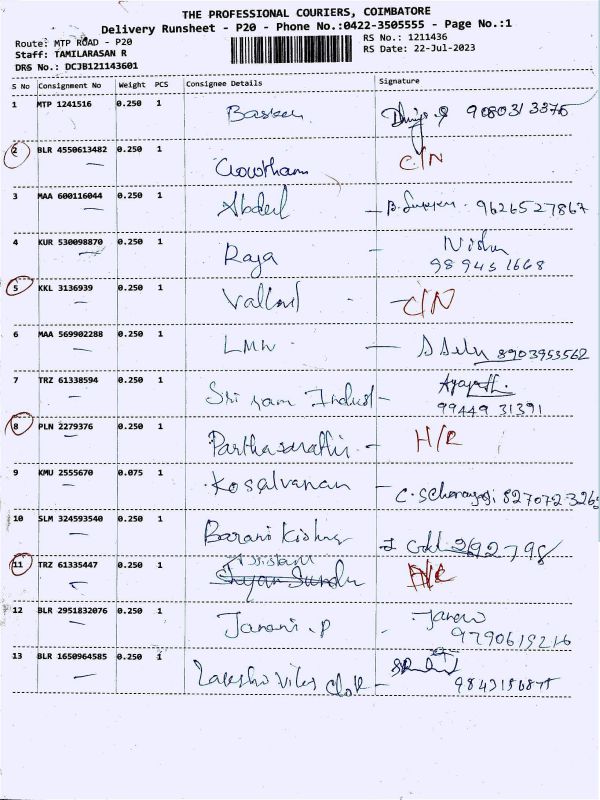 THE PROFESSIONAL COURIERS, COIMBATORE
Delivery Runsheet - P20 - Phone No.:0422-3505555 - Page No.:1
Route: MTP ROAD - P20
RS No.: 1211436
Staff: TAMILARASAN R
RS Date: 22-Jul-2023
DRS No.: DCJB121143601
S No Consignment No Weight PCS Consignee Details Signature
1 MTP 1241516 0.250 1 Baskar 9080313376
2 BLR 4550613482 0.250 1 Gowtham C/N
3 MAA 600116044 0.250 1 Abdul 9626527867
4 KUR 530098870 0.250 1 Raja
5 KKL 3136939 0.250 1 C/N
6 MAA 569902288 0.250 1 LMW 8903953562
7 TRZ 61338594 0.250 1 Sri ram Indust
99449 31391
8 PLN 2279376 0.250 1 Parthasarathi H/R
9 KMU 2555670 0.075 1 Kosalvanan
10 SLM 324593540 0.250 1 Barani Kishor
11 TRZ 61335447 0.250 1
12 BLR 2951832076 0.250 1 Janani.P
9790619216
13 BLR 1650964585 0.250 1